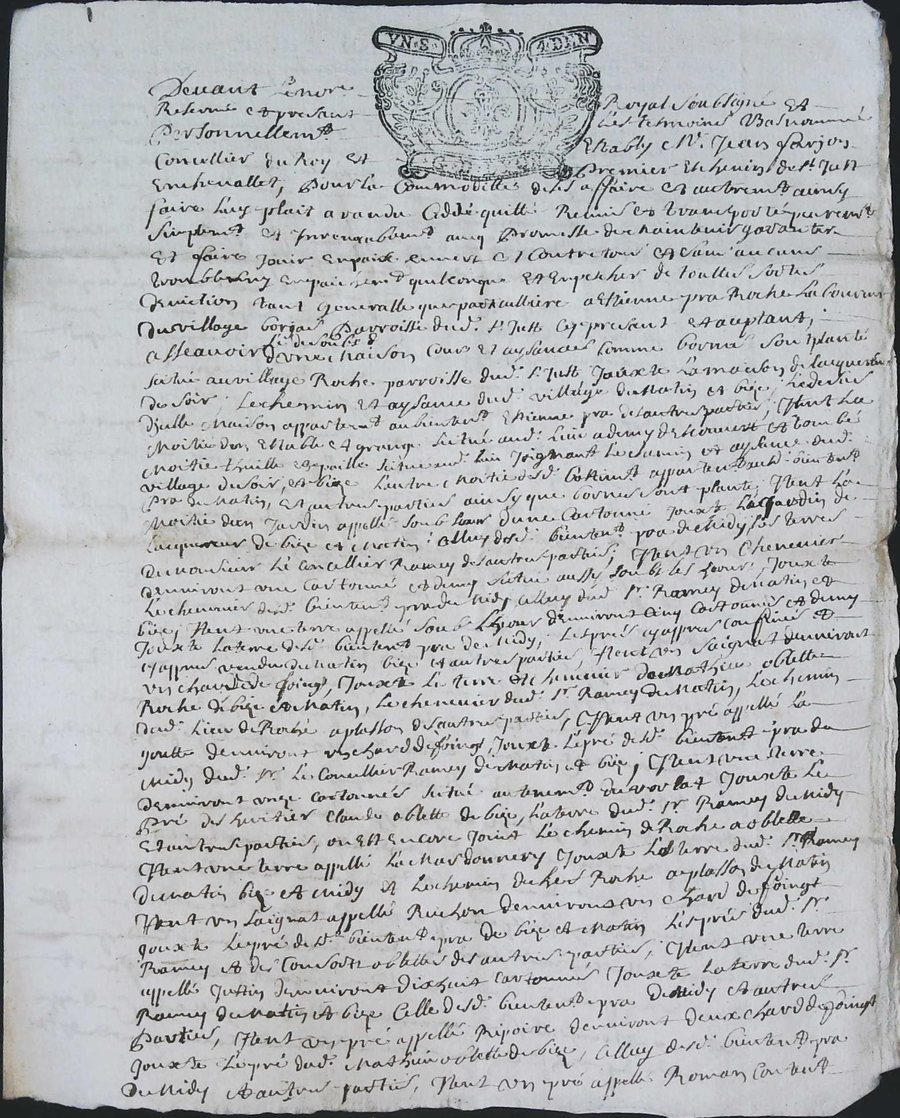 VN·S· 4·DEN
Devant Lenore Royal Soubsigné Et
Reservé et presant Les tesmoins Basnommé
Personnellemt Estably Mr. Jean
Concellier du Roy Et Premier Eschevin de St. Just
Enchevallet, Pour la Commoditté de ses affaire Et autremt ainsy
faire luy plait a vandu Ceddé quitté Remis et transporté puremt
Simplemt et Inrevocablemt avec Promesse de maintenir garanter
Et faire Jouir en paix envers et Contre tous et sans aucuns
troubles ny empaichemt quelconque Et Empecher de touttes sortes
deviction tant generalle que particulliere a Etienne pra Roche La
du village Parroisse dud. St. Just Cy present et aceptant,
asseavoir dune maison Cour Et aysances Comme bornes sont planté
Scitué au village Roche parroisse dud. St. Just Jouxte La maison de
de soir, Le chemin Et aysance dud. village de Matin et bize, Le dessus
delle Maison appartent aud bientent Etienne pra de autres parties, Item La
Moitié dun Estable et grange Scitué aud. Lieu a demy descouvert et tombé
Moitié thuille et paille Scitué aud. Lieu Joignant Le chemin et aysance dud.
village de soir, et bize Lautre Moitié appartent aud. bientent
Pra de Matin, Et autres parties ainsy que bornes sont planté, Item La
Moitié dun Jardin appellé soub dune Cartonné Jouxte Le Jardin de
Lacquereur de bize et Matin, Celluy dud. bientent pra de Midy Les terres
de Monsieur Le Concellier Ramey des autres parties, Item Un Chenevier
denviront une Cartonné et demy Scitué aussy soub les Cour, Jouxte
Le chenevier dud. bientent pra de Midy Celluy dud. Sr. Ramey de Matin et
bize, Item une terre appellé soub denviront Cinq Cartonnés et demy
Jouxte La terre dud. bientent pra de Midy, Les prés cy appres Confinés et
cy appres vendu de Matin bize et autres parties, Item Un Saignat denviront
un chard de foingt, Jouxte La terre et chenevier de Mathieu oblette
Roche de bize et Matin, Le chenevier dud. Sr. Ramey de Matin, Le chemin
dud. Lieu de Roche a plasson des autres parties, Item un pré appellé La
goutte denviront un chard de foingt, Jouxte Le pré dud. bientent pra de
Midy dud. Sr. Le Concellier Ramey de Matin et bize, Item une terre
denviront unze Cartonnées Scitué au tenemt du Jouxte Le
Pré des heritier Claude oblette de bize, La terre dud. Sr. Ramey de Midy
Et autres parties, ou Est Encore Joint Le chemin de Roche a oblette
Item une terre appellé La Mardonnery Jouxte La terre dud. Sr. Ramey
de Matin bize et Midy Et Le chemin de Roche a plasson de Matin
Item un Saignat appellé Ruchon denviront un chard de foingt
Jouxte Le pré dud. bientent pra de bize et Matin Les prés dud. Sr.
Ramey et des Consorts oblettes des autres parties, Item une terre
appellé Justin denviront dix huit Cartonnés Jouxte La terre dud. Sr.
Ramey de Matin et bize Celle dud. bientent pra de Midy et autres
Parties, Item un pré appellé Ripoire denviront deux chard de foingt
Jouxte Le pré dud. Mathieu oblette de bize, Celluy dud. bientent pra
de Midy et autres parties, Item un pré appellé Roman Content